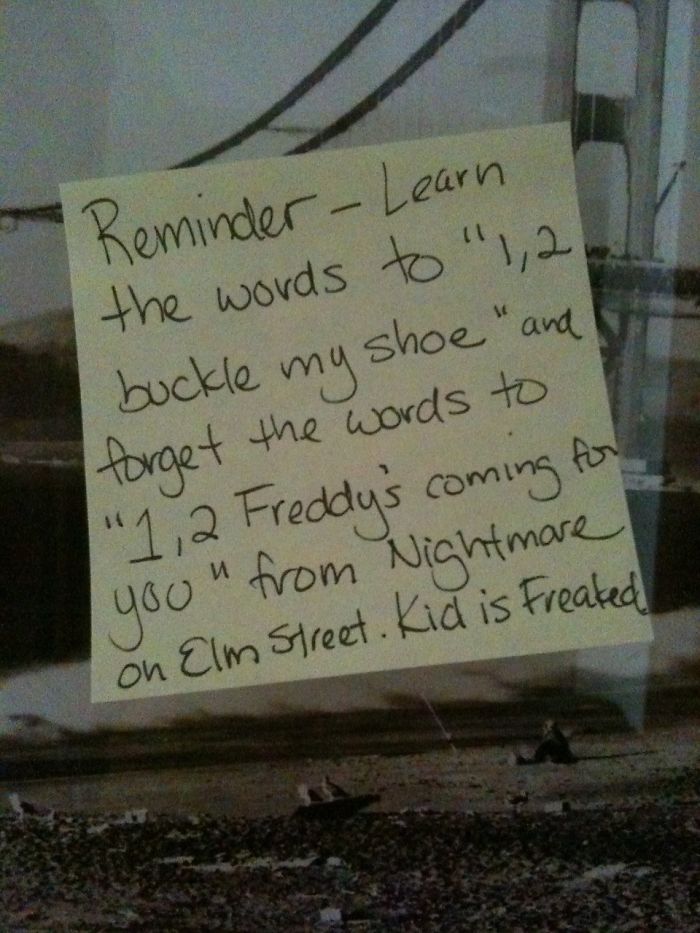 Reminder - Learn
the words to "1,2
buckle my shoe" and
forget the words to
"1,2 Freddy's coming for
you" from Nightmare
on Elm Street. Kid is Freaked.